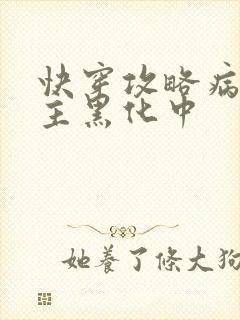 快穿攻略病
主黑化中
她養了條大狗